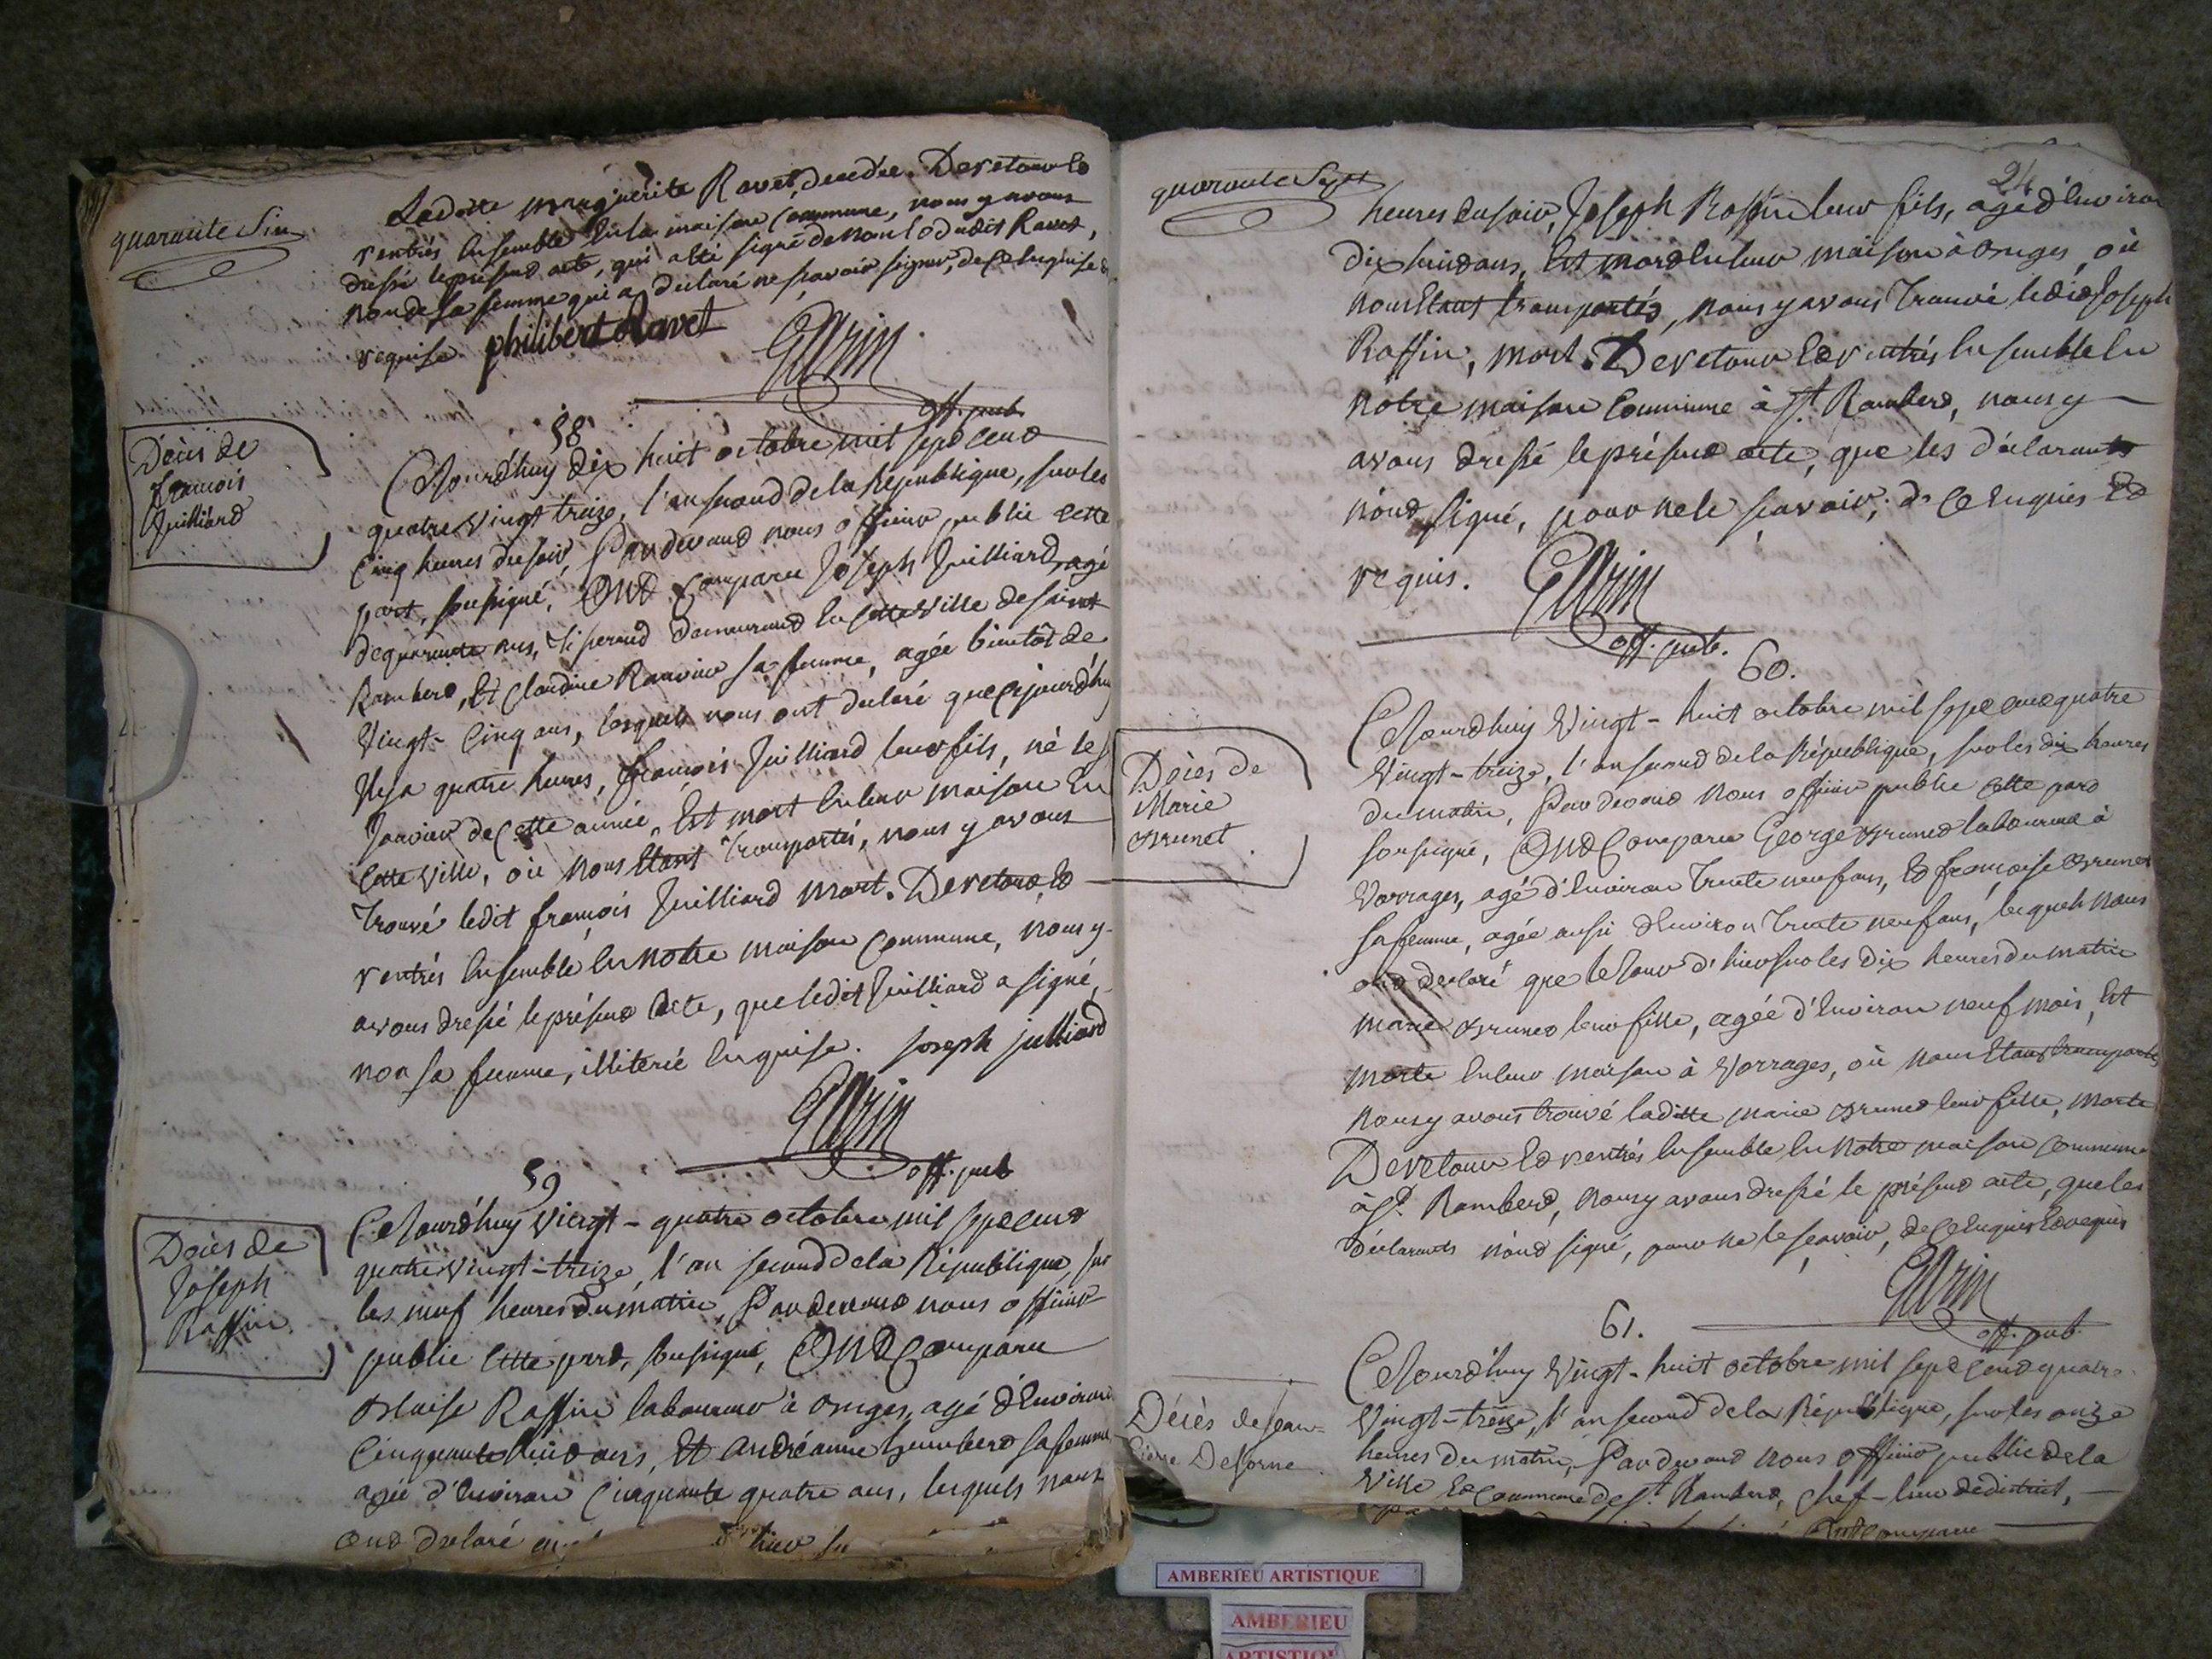 quarante Six
Laditte marguerite Ravet, decedée. De retour Et
rentrés Ensemble En la maison Commune, nous y avons
dressé le présent acte, qui a été signé de Nous Et dudit Ravet,
non de sa femme qui a declaré ne sçavoir signer, de ce Enquise &
requise. philibert Ravet
Garin
off. pub.
58
Décès de
françois
Juilliard
Cejourd'huy dix huit octobre mil sept cent
quatre vingt treize, l'an second de la République, sur les
Cinq heures du soir, Par devant nous officier public cette
part, soussigné, Ont Comparu Joseph Juilliard, agé
de quarante ans, Tisserand demeurant En cette Ville de saint
Rambert, Et Claudine Ravier sa femme, agée bientôt de
Vingt-Cinq ans, lesquels nous ont declaré que Cejourd'huy
Il y a quatre heures, françois Juilliard leur fils, né le
Janvier de Cette année, Est mort En leur maison En
Cette Ville, où Nous Etant Transportés, nous y avons
Trouvé ledit françois Juilliard Mort. De retour Et
rentrés Ensemble En Notre maison Commune, Nous y
avons dressé le présent acte, que ledit Juilliard a signé,
non sa femme, illiterée Enquise. joseph julliard
Garin
off. pub
59
Décès de
Joseph
Raffin.
Cejourd'huy Vingt-quatre octobre mil sept cent
quatre Vingt-treize, l'an second de la République, sur
les neuf heures du matin, Par devant nous officier
public Cette part, soussigné, Ont Comparu
Blaise Raffin laboureur à Oruges, agé d'Environ
Cinquante huit ans, Et andréanne humbert sa femme,
agée d'Environ Cinquante quatre ans, lesquels nous
ont declaré hier
quarante Sept
24
heures du soir, Joseph Raffin leur fils, agé d'Environ
dix huit ans, Est mort En leur maison à Oruges, où
nous Etant transportés, nous y avons Trouvé ledit Joseph
Raffin, mort. De retour Et rentrés Ensemble En
nôtre maison Commune à St. Rambert, nous y
avons dressé le présent acte, que les déclarants
n'ont signé, pour ne le sçavoir, de ce Enquis Et
requis. Garin
off. pub.
60.
Décès de
Marie
Brunet.
Cejourd'huy Vingt-huit octobre mil sept cent quatre
Vingt-treize, l'an second de la République, sur les dix heures
du matin, Par devant Nous officier public Cette part
soussigné, Ont Comparu George Brunet laboureur à
Vorrages, agé d'Environ Trente neuf ans, Et françoise Brunet
sa femme, agée aussi d'Environ Trente neuf ans, lesquels nous
ont declaré que le Jour d'hier sur les dix heures du matin
marie Brunet leur fille, agée d'Environ neuf mois, Est
morte En leur maison à Vorrages, où nous Etant transportés,
nous y avons trouvé laditte marie Brunet leur fille, morte
De retour Et rentrés Ensemble En Notre maison commune
à St. Rambert, Nous y avons dressé le présent acte, que les
déclarants n'ont signé, pour ne le sçavoir, de ce Enquis Et requis
Garin
off. pub.
61.
Décès de Jean-
Pierre Delorme.
Cejourd'huy Vingt-huit octobre mil sept Cent quatre-
Vingt-treize, l'an second de la République, sur les onze
heures du matin, Par devant Nous officier public de la
Ville Et Commune de St. Rambert, Chef-lieu de district,
Ont Comparu
AMBERIEU ARTISTIQUE
AMBERIEU
ARTISTIQUE